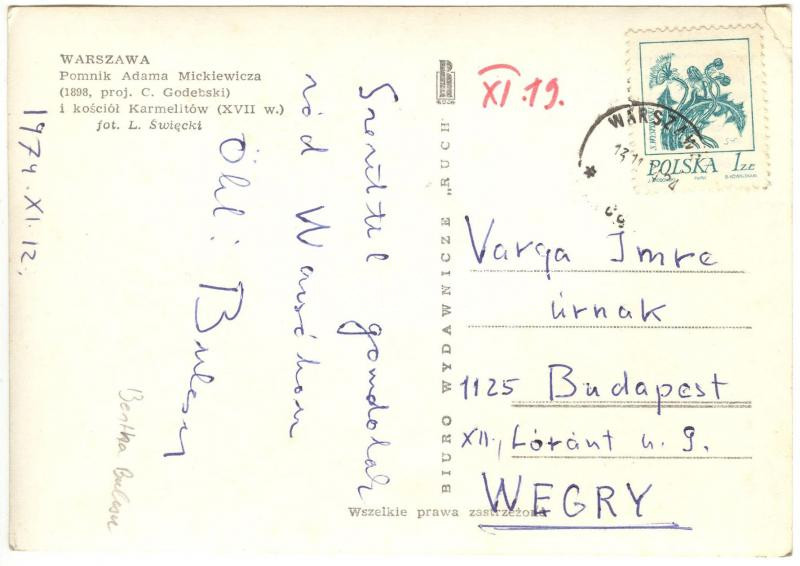 WARSZAWA
Pomnik Adama Mickiewicza
(1898, proj. C. Godebski)
i kościół Karmelitów (XVII w.)
fot. L. Święcki
1974. XI. 12.
Szeretettel gondolak
rád Warsóban
Ölel:
Bulcsu
Bertha Bulcsu
BIURO WYDAWNICZE „RUCH
XI. 19.
WARSZAWA
POLSKA 1 ZŁ
Varga Imre
úrnak
1125 Budapest
XII., Lóránt u. 9.
WEGRY
Wszelkie prawa zastrzeżone